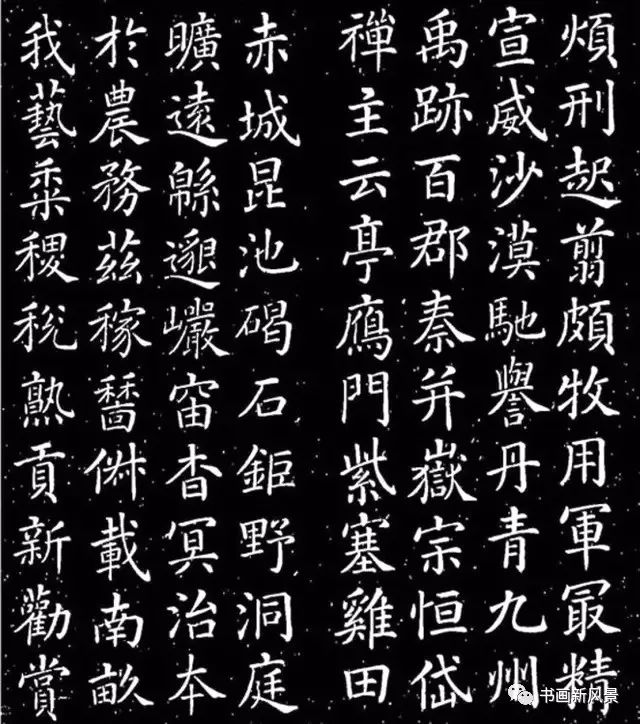 煩刑起翦頗牧用軍冣精
宣威沙漠馳譽丹青九州
禹跡百郡秦并嶽宗恒岱
禪主云亭鴈門紫塞雞田
赤城昆池碣石鉅野洞庭
曠遠緜邈巗岫杳冥治本
於農務茲稼穡俶載南畝
我藝黍稷稅熟貢新勸賞
书画新风景